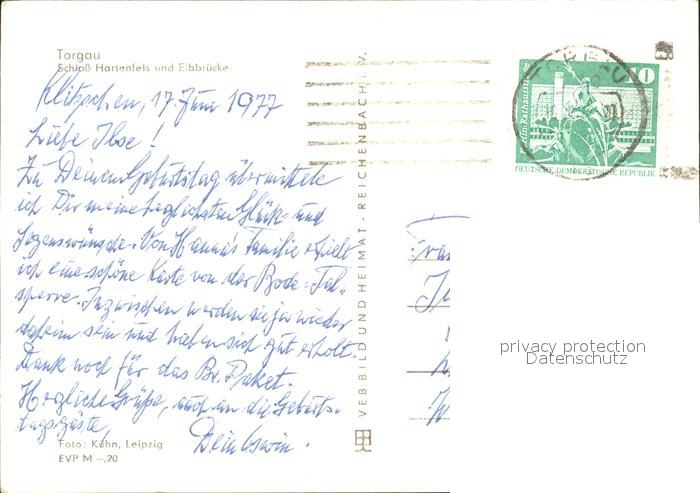 Torgau
Schloß Hartenfels und Elbbrücke
Klitzschen, 17. Juni 1977
Liebe Ilse!
Zu Deinem Geburtstag übermittele
ich Dir meine herzlichsten Glück- und
Segenswünsche. Von Hanna's Familie erhielt
ich eine schöne Karte von der Bode-Tal-
sperre. Inzwischen werden sie ja wieder
daheim sein und haben sich gut erholt.
Dank noch für das Br. Paket.
Herzliche Grüße, auch an die Geburts-
tagsgäste,
Dein
Foto: Kühn, Leipzig
EVP M –,20
VEB BILD UND HEIMAT · REICHENBACH I. V.
TORGAU
10
Berlin-Rathausstraße
DEUTSCHE DEMOKRATISCHE REPUBLIK
Frau
privacy protection
Datenschutz